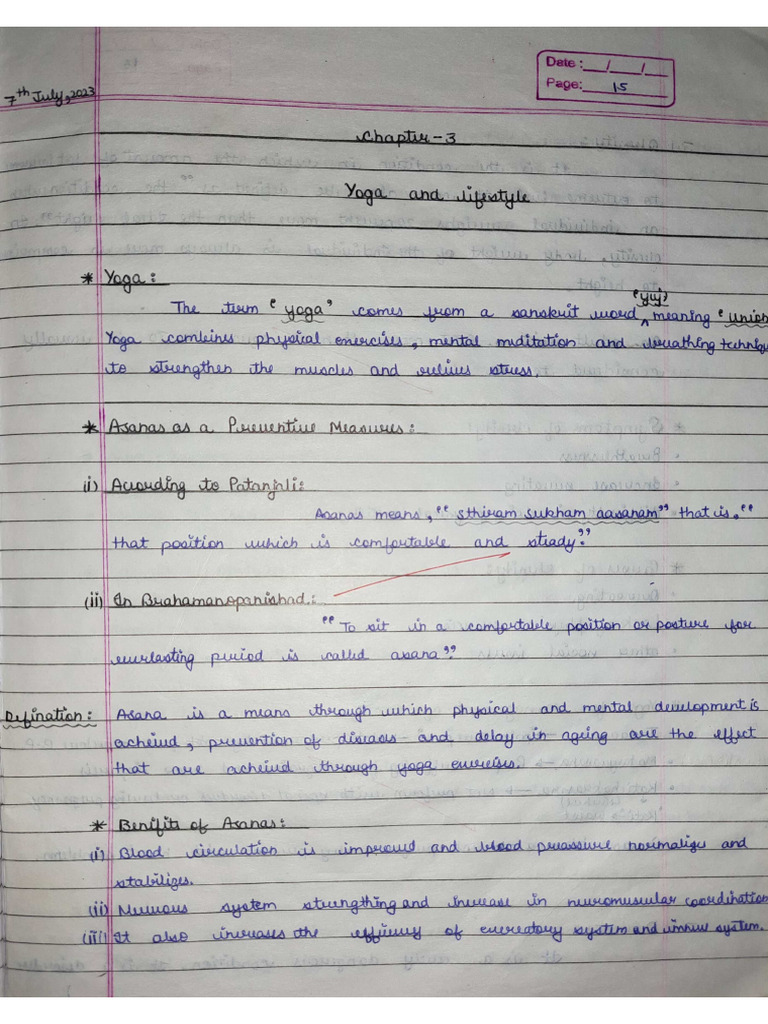 Date: __/__/__
Page: 15
7th July, 2023
Chapter-3
Yoga and lifestyle
* Yoga:
The term "yoga" comes from a sanskrit word "yuj" meaning "union
Yoga combines physical exercises, mental meditation and breathing techniqu
to strengthen the muscles and relives stress.
* Asanas as a Preventive Measures:
i) According to Patanjali:
Asanas means, "sthiram sukham aasanam" that is, "
that position which is comfortable and steady."
(ii) In Brahamanopanishad:
"To sit in a comfortable position or posture for
everlasting period is called asana".
Defination: Asana is a means through which physical and mental development is
acheivd, prevention of diseases and delay in ageing are the effect
that are acheivd through yoga exercises.
* Benifits of Asanas:
(i) Blood circulation is improved and blood preassure normalize and
stabilizes.
(ii) Nervous system strengthing and increase in neuromuscular coordination
(iii) It also increases the efficiency of excreatory system and immune system.